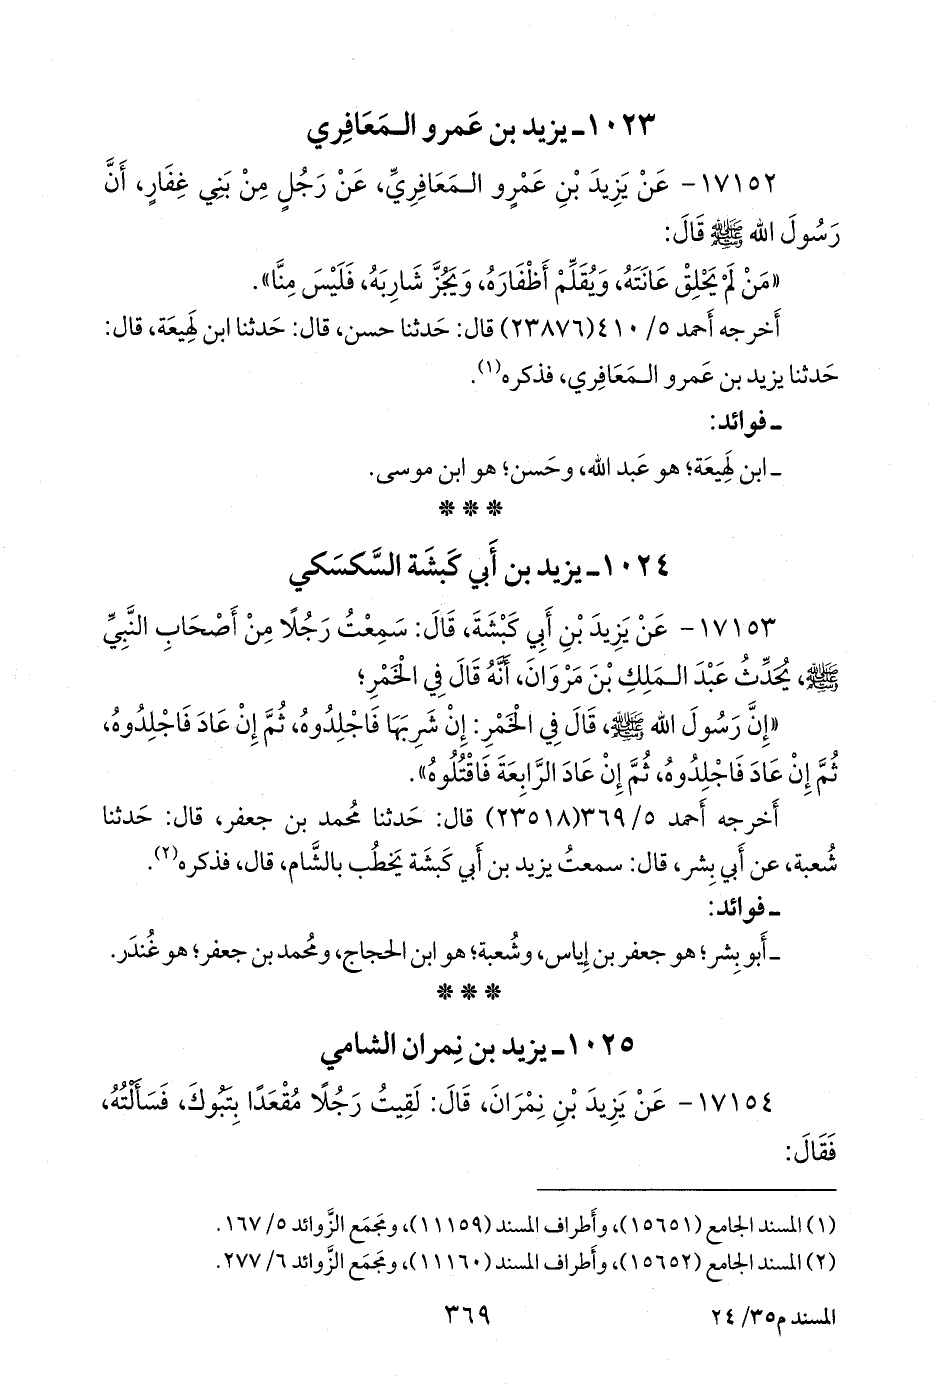 ١٠٢٣ـ يزيد بن عَمرو الـمَعَافِري
١٧١٥٢- عَنْ يَزِيدَ بْنِ عَمْرٍو الـمَعَافِرِيِّ، عَنْ رَجُلٍ مِنْ بَنِي غِفَارٍ، أَنَّ
رَسُولَ الله ﷺ قَالَ:
«مَنْ لَمْ يَحْلِقْ عَانَتَهُ، وَيُقَلِّمْ أَظْفَارَهُ، وَيَجُزَّ شَارِبَهُ، فَلَيْسَ مِنَّا».
أَخرجه أحمد ٥/ ٤١٠(٢٣٨٧٦) قال: حَدثنا حسن، قال: حَدثنا ابن لَهِيعَة، قال:
حَدثنا يزيد بن عَمرو الـمَعَافِري، فذكره(١).
ـ فوائد:
ـ ابن لَهِيعَة؛ هو عَبد الله، وحَسن؛ هو ابن موسى.
* * *
١٠٢٤ـ يزيد بن أَبي كَبشَة السَّكسَكي
١٧١٥٣- عَنْ يَزِيدَ بْنِ أَبِي كَبْشَةَ، قَالَ: سَمِعْتُ رَجُلًا مِنْ أَصْحَابِ النَّبِيِّ
ﷺ، يُحَدِّثُ عَبْدَ الـمَلِكِ بْنَ مَرْوَانَ، أَنَّهُ قَالَ فِي الْخَمْرِ؛
«إِنَّ رَسُولَ الله ﷺ، قَالَ فِي الْخَمْرِ: إِنْ شَرِبَهَا فَاجْلِدُوهُ، ثُمَّ إِنْ عَادَ فَاجْلِدُوهُ،
ثُمَّ إِنْ عَادَ فَاجْلِدُوهُ، ثُمَّ إِنْ عَادَ الرَّابِعَةَ فَاقْتُلُوهُ».
أَخرجه أَحمد ٥/ ٣٦٩(٢٣٥١٨) قال: حَدثنا مُحمد بن جعفر، قال: حَدثنا
شُعبة، عن أَبي بِشر، قال: سمعتُ يزيد بن أَبي كَبشَة يَخطُب بالشَّام، قال، فذكره(٢).
ـ فوائد:
ـ أَبو بِشر؛ هو جعفر بن إِياس، وشُعبة؛ هو ابن الحجاج، ومُحمد بن جعفر؛ هو غُندَر.
* * *
١٠٢٥ـ يزيد بن نِمران الشامي
١٧١٥٤- عَنْ يَزِيدَ بْنِ نِمْرَانَ، قَالَ: لَقِيتُ رَجُلًا مُقْعَدًا بِتَبُوكَ، فَسَأَلْتُهُ،
فَقَالَ:
(١) المسند الجامع (١٥٦٥١)، وأَطراف المسند (١١١٥٩)، ومَجمَع الزَّوائد ٥/ ١٦٧.
(٢) المسند الجامع (١٥٦٥٢)، وأَطراف المسند (١١١٦٠)، ومَجمَع الزَّوائد ٦/ ٢٧٧.
المسند م٣٥/ ٢٤
٣٦٩